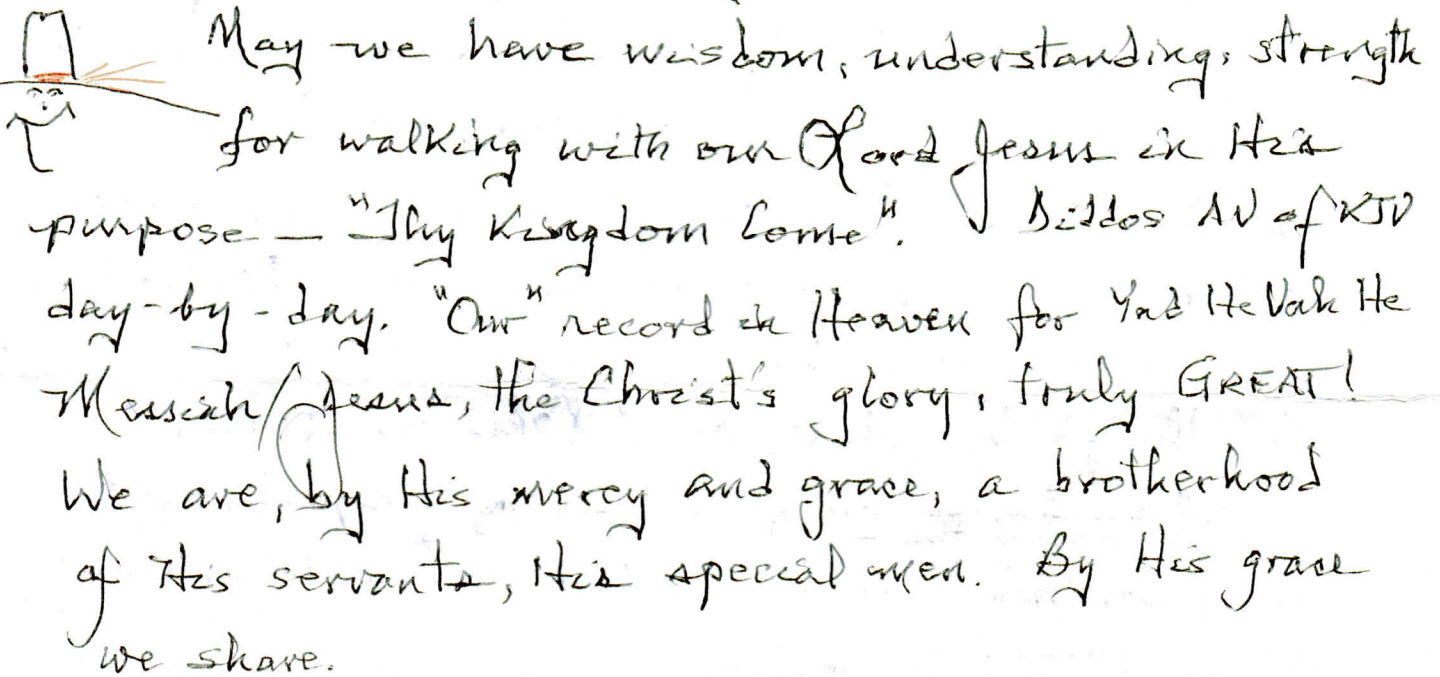 May we have wisdom, understanding, strength
for walking with our Lord Jesus in His
purpose — "Thy Kingdom Come". AV of KJV
day-by-day. "Our" record in Heaven for Yad He Vah He
Messiah/Jesus, the Christ's glory, truly GREAT!
We are, by His mercy and grace, a brotherhood
of His servants, His special men. By His grace
we share.